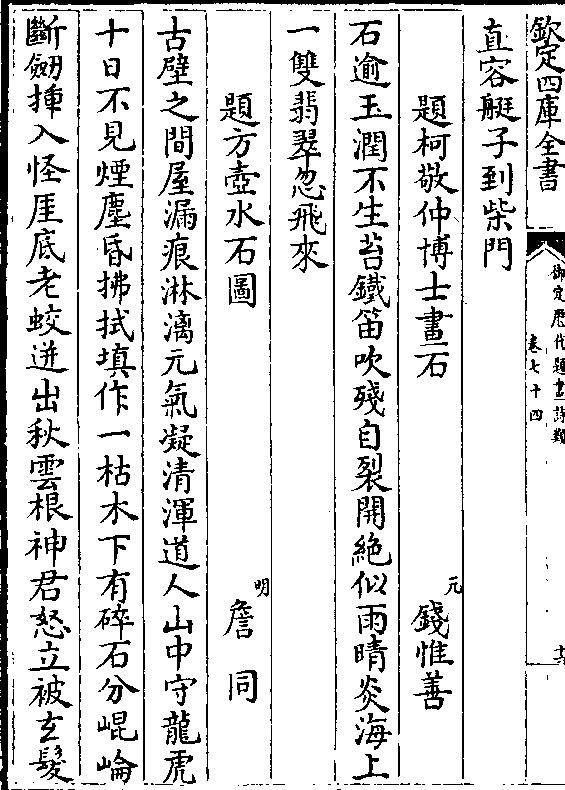 欽定四庫全書
御定歷代題畫詩類
卷七十四
十六
直容艇子到柴門
題柯敬仲博士畫石
元 錢惟善
石逾玉潤不生苔鐵笛吹殘自裂開絶似雨晴炎海上
一雙翡翠忽飛來
題方壺水石圖
明 詹同
古壁之間屋漏痕淋漓元氣凝清渾道人山中守龍虎
十日不見煙塵昏拂拭填作一枯木下有碎石分崐崘
斷劒揷入怪厓底老蛟迸出秋雲根神君怒立被玄髮